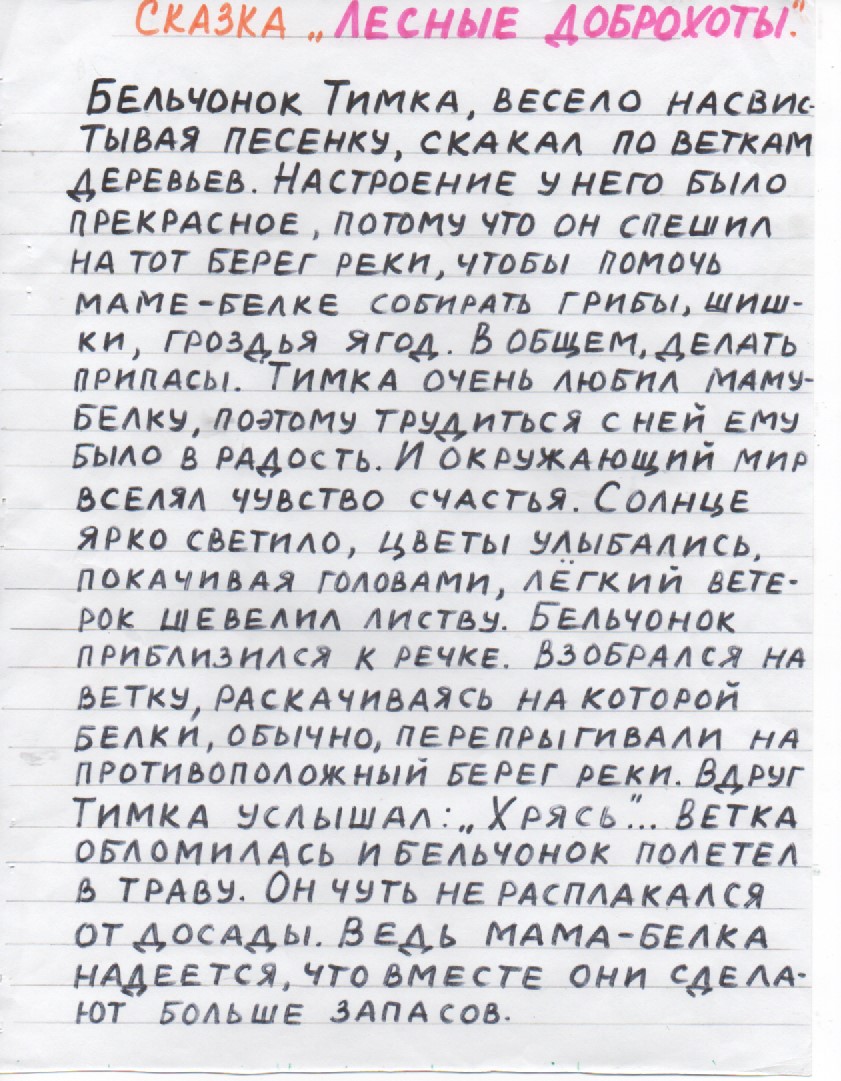 Сказка „Лесные доброхоты."
Бельчонок Тимка, весело насвис-
тывая песенку, скакал по веткам
деревьев. Настроение у него было
прекрасное, потому что он спешил
на тот берег реки, чтобы помочь
маме-белке собирать грибы, шиш-
ки, гроздья ягод. В общем, делать
припасы. Тимка очень любил маму-
белку, поэтому трудиться с ней ему
было в радость. И окружающий мир
вселял чувство счастья. Солнце
ярко светило, цветы улыбались,
покачивая головами, лёгкий вете-
рок шевелил листву. Бельчонок
приблизился к речке. Взобрался на
ветку, раскачиваясь на которой
белки, обычно, перепрыгивали на
противоположный берег реки. Вдруг
Тимка услышал: „Хрясь"... Ветка
обломилась и бельчонок полетел
в траву. Он чуть не расплакался
от досады. Ведь мама-белка
надеется, что вместе они сдела-
ют больше запасов.